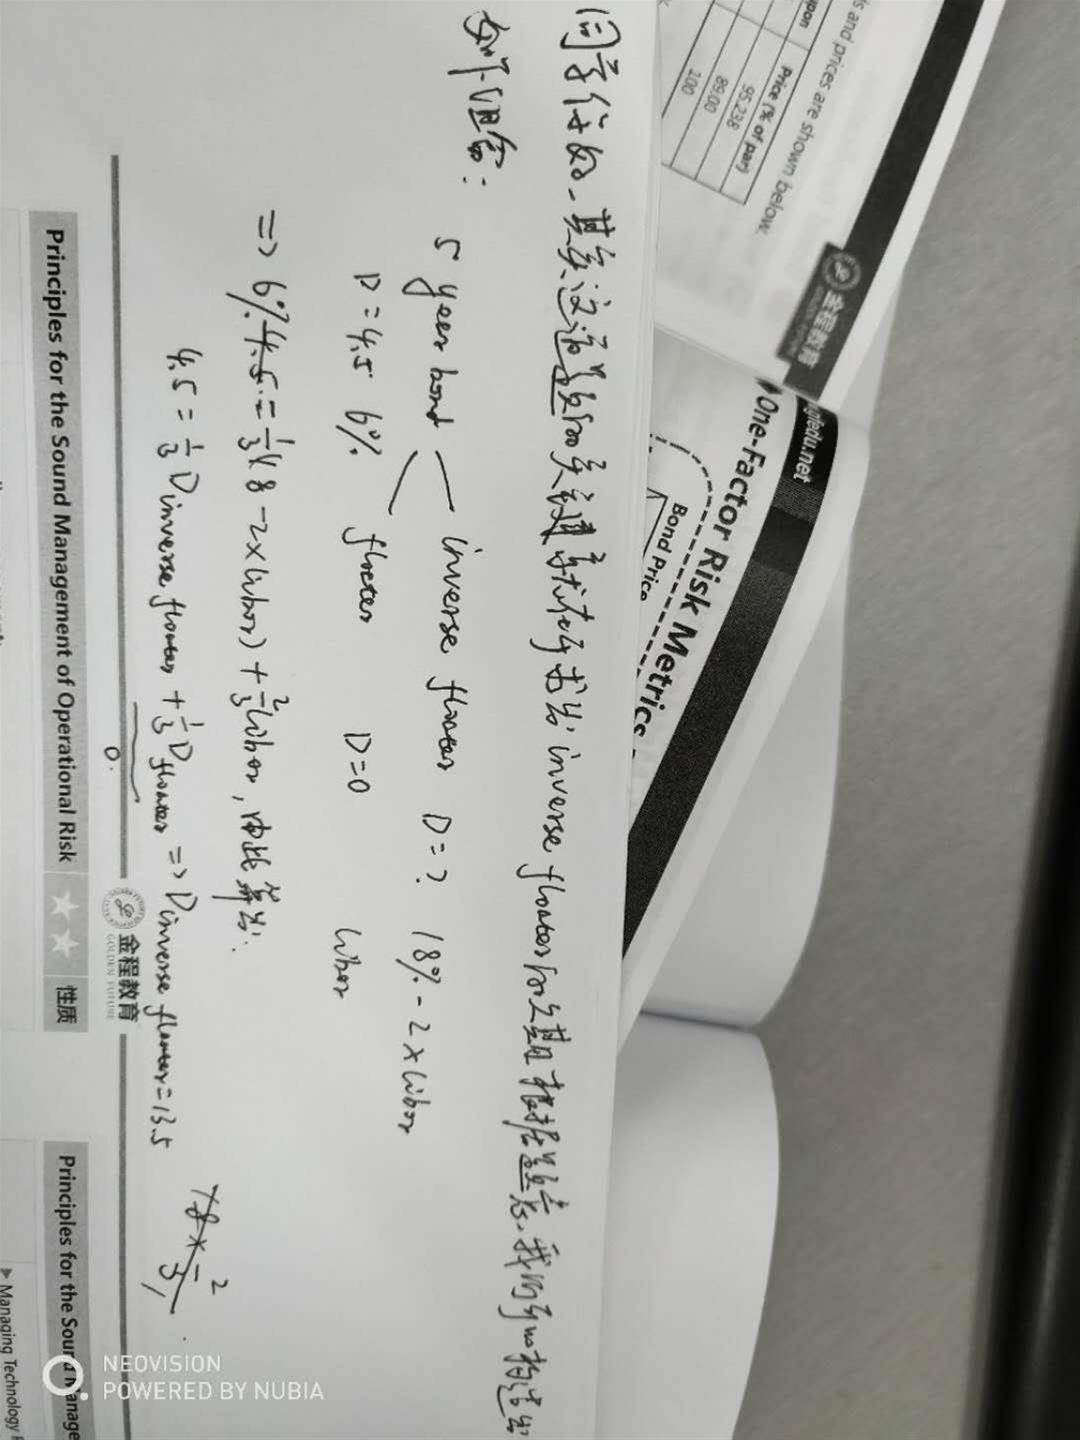 同学你好,其实这道题的关键就在于求出 inverse floater 的久期根据题意,我们可以构造出
如下组合:
5 year bond
inverse floater D=? 18%-2×Libor
D=4.5 6%
floater D=0 Libor
=> 6% 4.5 = 1/3(18-2×Libor) + 2/3 Libor, 由此算出:
4.5 = 1/3 D inverse floater + 1/3 D floater => D inverse floater = 13.5
0.
18× 2/3
s and prices are shown below:
upon
Price (% of par)
95.238
89.00
100
金程教育
gfedu.net
One-Factor Risk Metrics
Bond Price
金程教育
GOLDEN FUTURE
Principles for the Sound Management of Operational Risk
★★
性质
Principles for the Sound Manage
▶ Managing Technology
NEOVISION
POWERED BY NUBIA